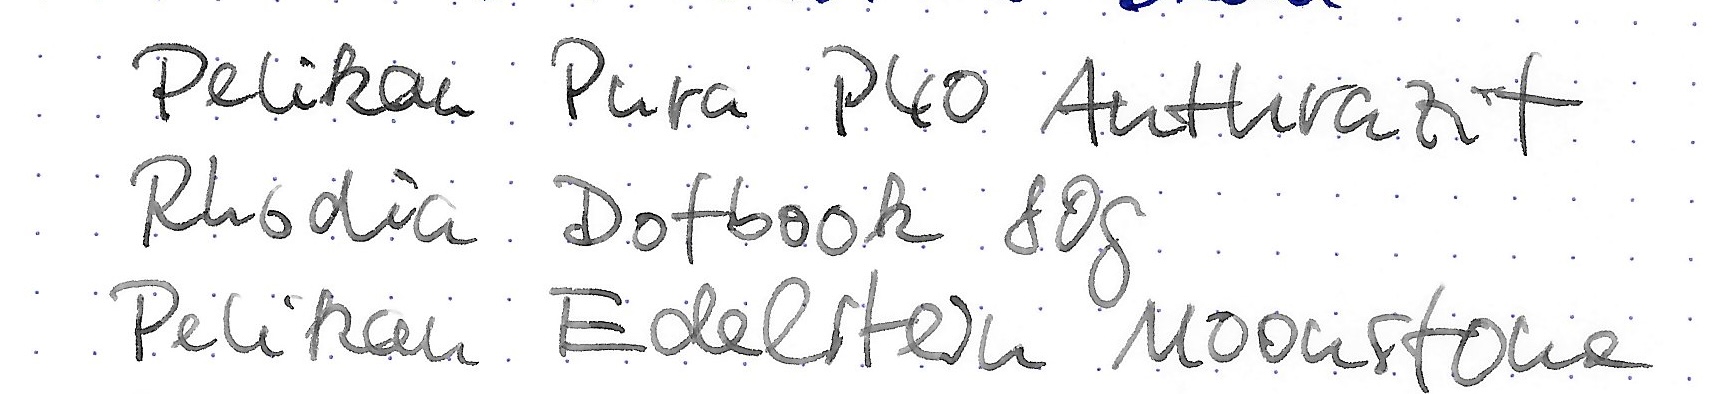 Pelikan Pura P40 Anthrazit
Rhodia Dotbook 80g
Pelikan Edelstein Moonstone